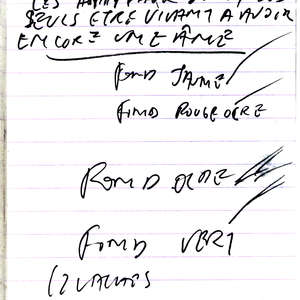 SEULS ETRE VIVANT A AVOIR
ENCORE UNE ÂME
FOND JAUNE
FOND ROUGE OCRE
ROND OCRE
FOND VERT
(2 VACHES